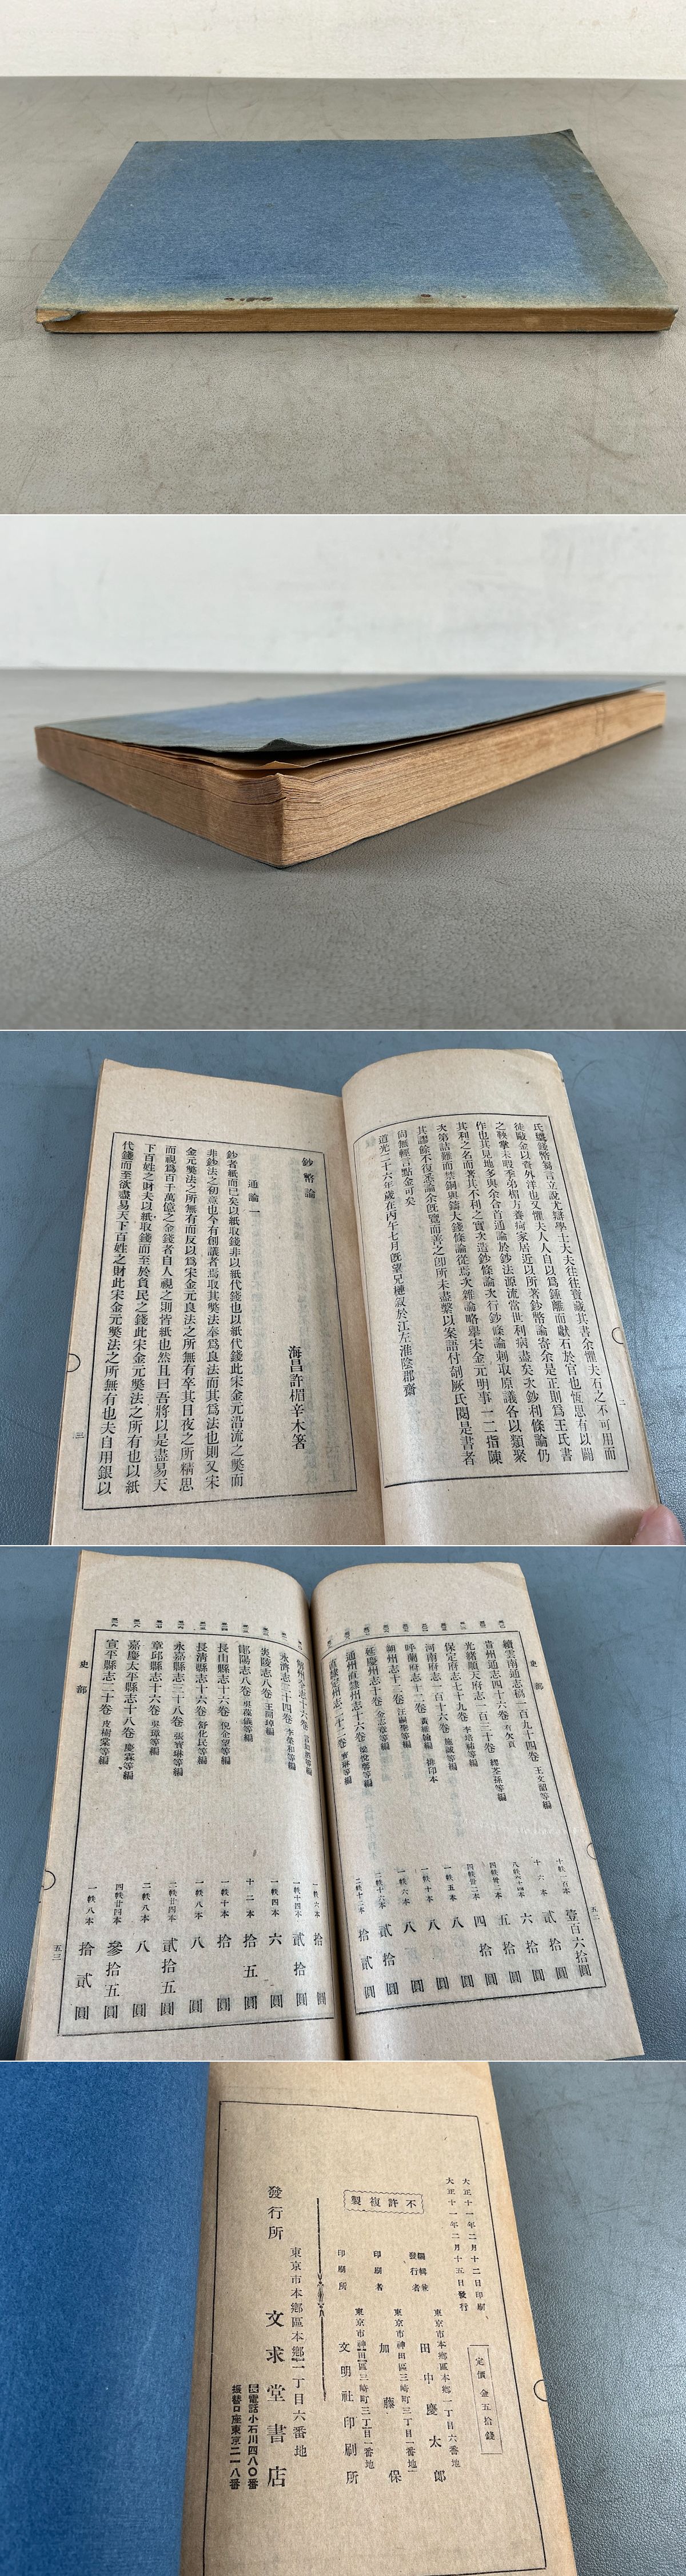 氏鬻錢幣芻言立說尤辯學士大夫往往寶藏其書余懼夫石之不可用而
徒毆金以資外洋也又懼夫人人自以為錘離而獻石於官也恆思有以闢
之鞅掌未暇季弟楣方養疴家居近以所著鈔幣論寄余是正則為王氏書
作也其見地多與余合首通論於鈔法源流當世利病盡矣次鈔利條論仍
其利之名而著其不利之實次造鈔條論次行鈔條論剌取原議各以類聚
次第詰難而禁銅與鑄大錢條論從焉次雜論略舉宋金元明事一二指陳
其謬餘不復悉論余既覽而善之卽所未盡繫以案語付剞厥氏閱是書者
尙無輕言點金可矣
道光二十六年歲在丙午七月旣望兄槤敘於江左淮陰郡齋
二
鈔幣論
海昌許楣辛木箸
通論一
鈔者紙而已矣以紙取錢非以紙代錢也以紙代錢此宋金元沿流之獘而
非鈔法之初意也今有創議者焉取其獘法奉為良法而其為法也則又宋
金元獘法之所無有而反以為宋金元良法之所無有卒其日夜之所精思
而視為百千萬億之金錢者自人視之則皆紙也然且曰吾將以是盡易天
下百姓之財夫以紙取錢而至於負民之錢此宋金元獘法之所有也以紙
代錢而至欲盡易天下百姓之財此宋金元獘法之所無有也夫自用銀以
三
史部
續雲南通志稿一百九十四卷 王文韶等編 十帙一百本 壹百六拾圓
貴州通志四十六卷 有欠頁 十六本 貳拾圓
光緒順天府志一百三十卷 繆荃孫等編 八帙六十四本 六拾圓
保定府志七十九卷 李培祜等編 四帙卅二本 五拾圓
河南府志一百十六卷 施誠等編 四帙廿二本 四拾圓
呼蘭府志十二卷 黃維翰編 排印本 一帙五本 八圓
潁州志十二卷 汪嗣聖等編 一帙十本 八圓
延慶州志十卷 金志章等編 一帙六本 八圓
通州直隸州志十六卷 梁悅馨等編 二帙十六本 貳拾圓
直隸定州志二十二卷 寶琳等編 二帙十二本 拾貳圓
五二
一帙六本 拾圓
永濟志二十四卷 李榮和等編 一帙十四本 貳拾圓
炎陵志八卷 王開琸編 一帙四本 六圓
鄖陽志八卷 吳葆儀等編 十二本 拾五圓
長山縣志十六卷 倪企望等編 一帙十本 拾圓
長清縣志十六卷 舒化民等編 一帙八本 八圓
永嘉縣志三十八卷 張寶琳等編 二帙廿四本 貳拾五圓
章邱縣志十六卷 吳璋等編 二帙八本 八圓
嘉慶太平縣志十八卷 慶霖等編 四帙廿四本 參拾五圓
宣平縣志二十卷 皮樹棠等編 一帙八本 拾貳圓
史部
五三
大正十一年二月十二日印刷
大正十一年二月十五日發行
定價金五拾錢
不許複製
編輯兼發行者
東京市本鄉區本鄉一丁目六番地
田中慶太郎
印刷者
東京市神田區三崎町三丁目一番地
加藤保
印刷所
東京市神田區三崎町三丁目一番地
文明社印刷所
發行所
東京市本鄉區本鄉一丁目六番地
文求堂書店
電話小石川四八〇番
振替口座東京二一八番